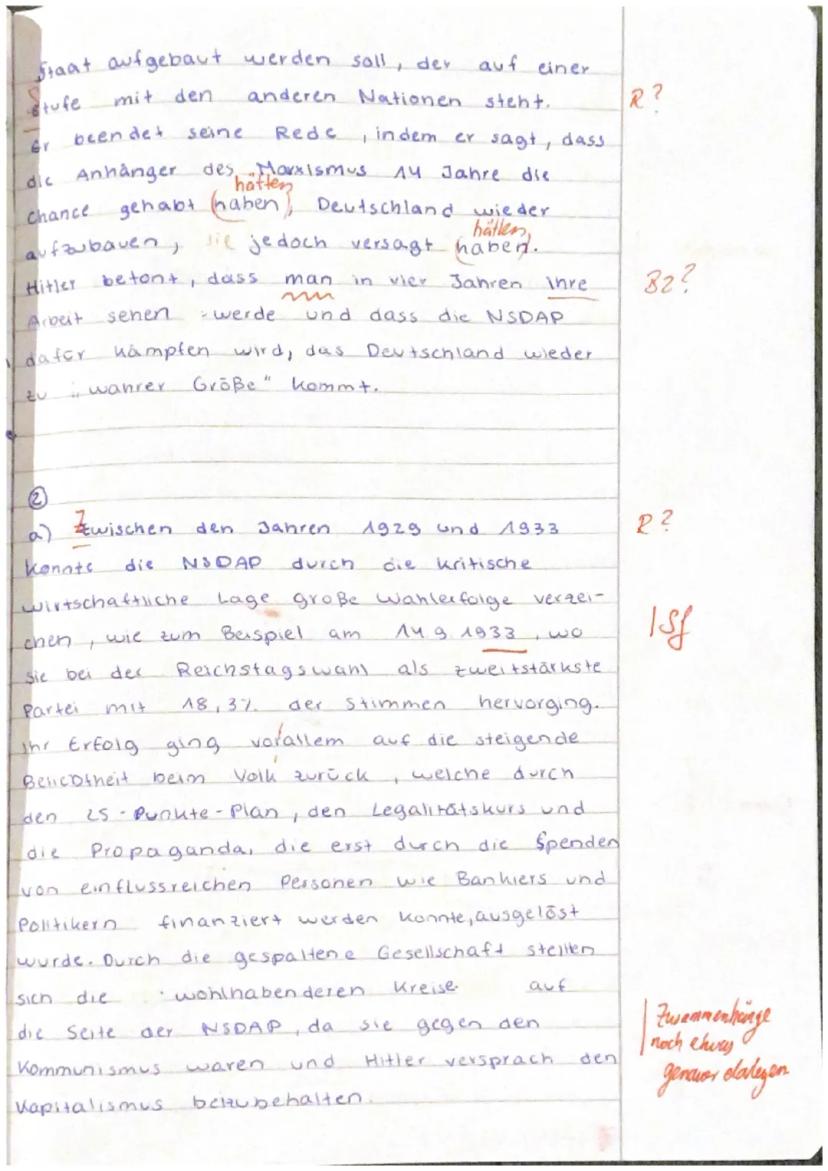 Staat aufgebaut werden soll, der auf einer
Stufe mit den anderen Nationen steht. R?
Er beendet seine Rede, indem er sagt, dass
die Anhänger des Marxismus 14 Jahre die
hätten
Chance gehabt (haben), Deutschland wieder
hätten
aufzubauen, sie jedoch versagt (haben).
Hitler betont, dass man in vier Jahren ihre Bz?
Arbeit sehen werde und dass die NSDAP
dafür kämpfen wird, das Deutschland wieder
zu "wahrer Größe" kommt.
②
a) Zwischen den Jahren 1929 und 1933 R?
konnte die NSDAP durch die kritische
wirtschaftliche Lage große Wahlerfolge verzei-
chen, wie zum Beispiel am 14.9.1933, wo |Sf
sie bei der Reichstagswahl als zweitstärkste
Partei mit 18,3% der Stimmen hervorging.
Ihr Erfolg ging vorallem auf die steigende
Beliebtheit beim Volk zurück, welche durch
den 25-Punkte-Plan, den Legalitätskurs und
die Propaganda, die erst durch die Spenden
von einflussreichen Personen wie Bankiers und
Politikern finanziert werden konnte, ausgelöst
wurde. Durch die gespaltene Gesellschaft stellten
sich die wohlhabenderen Kreise auf
die Seite der NSDAP, da sie gegen den
Kommunismus waren und Hitler versprach den
Kapitalismus beizubehalten.
Zusammenhänge
noch etwas
genauer darlegen